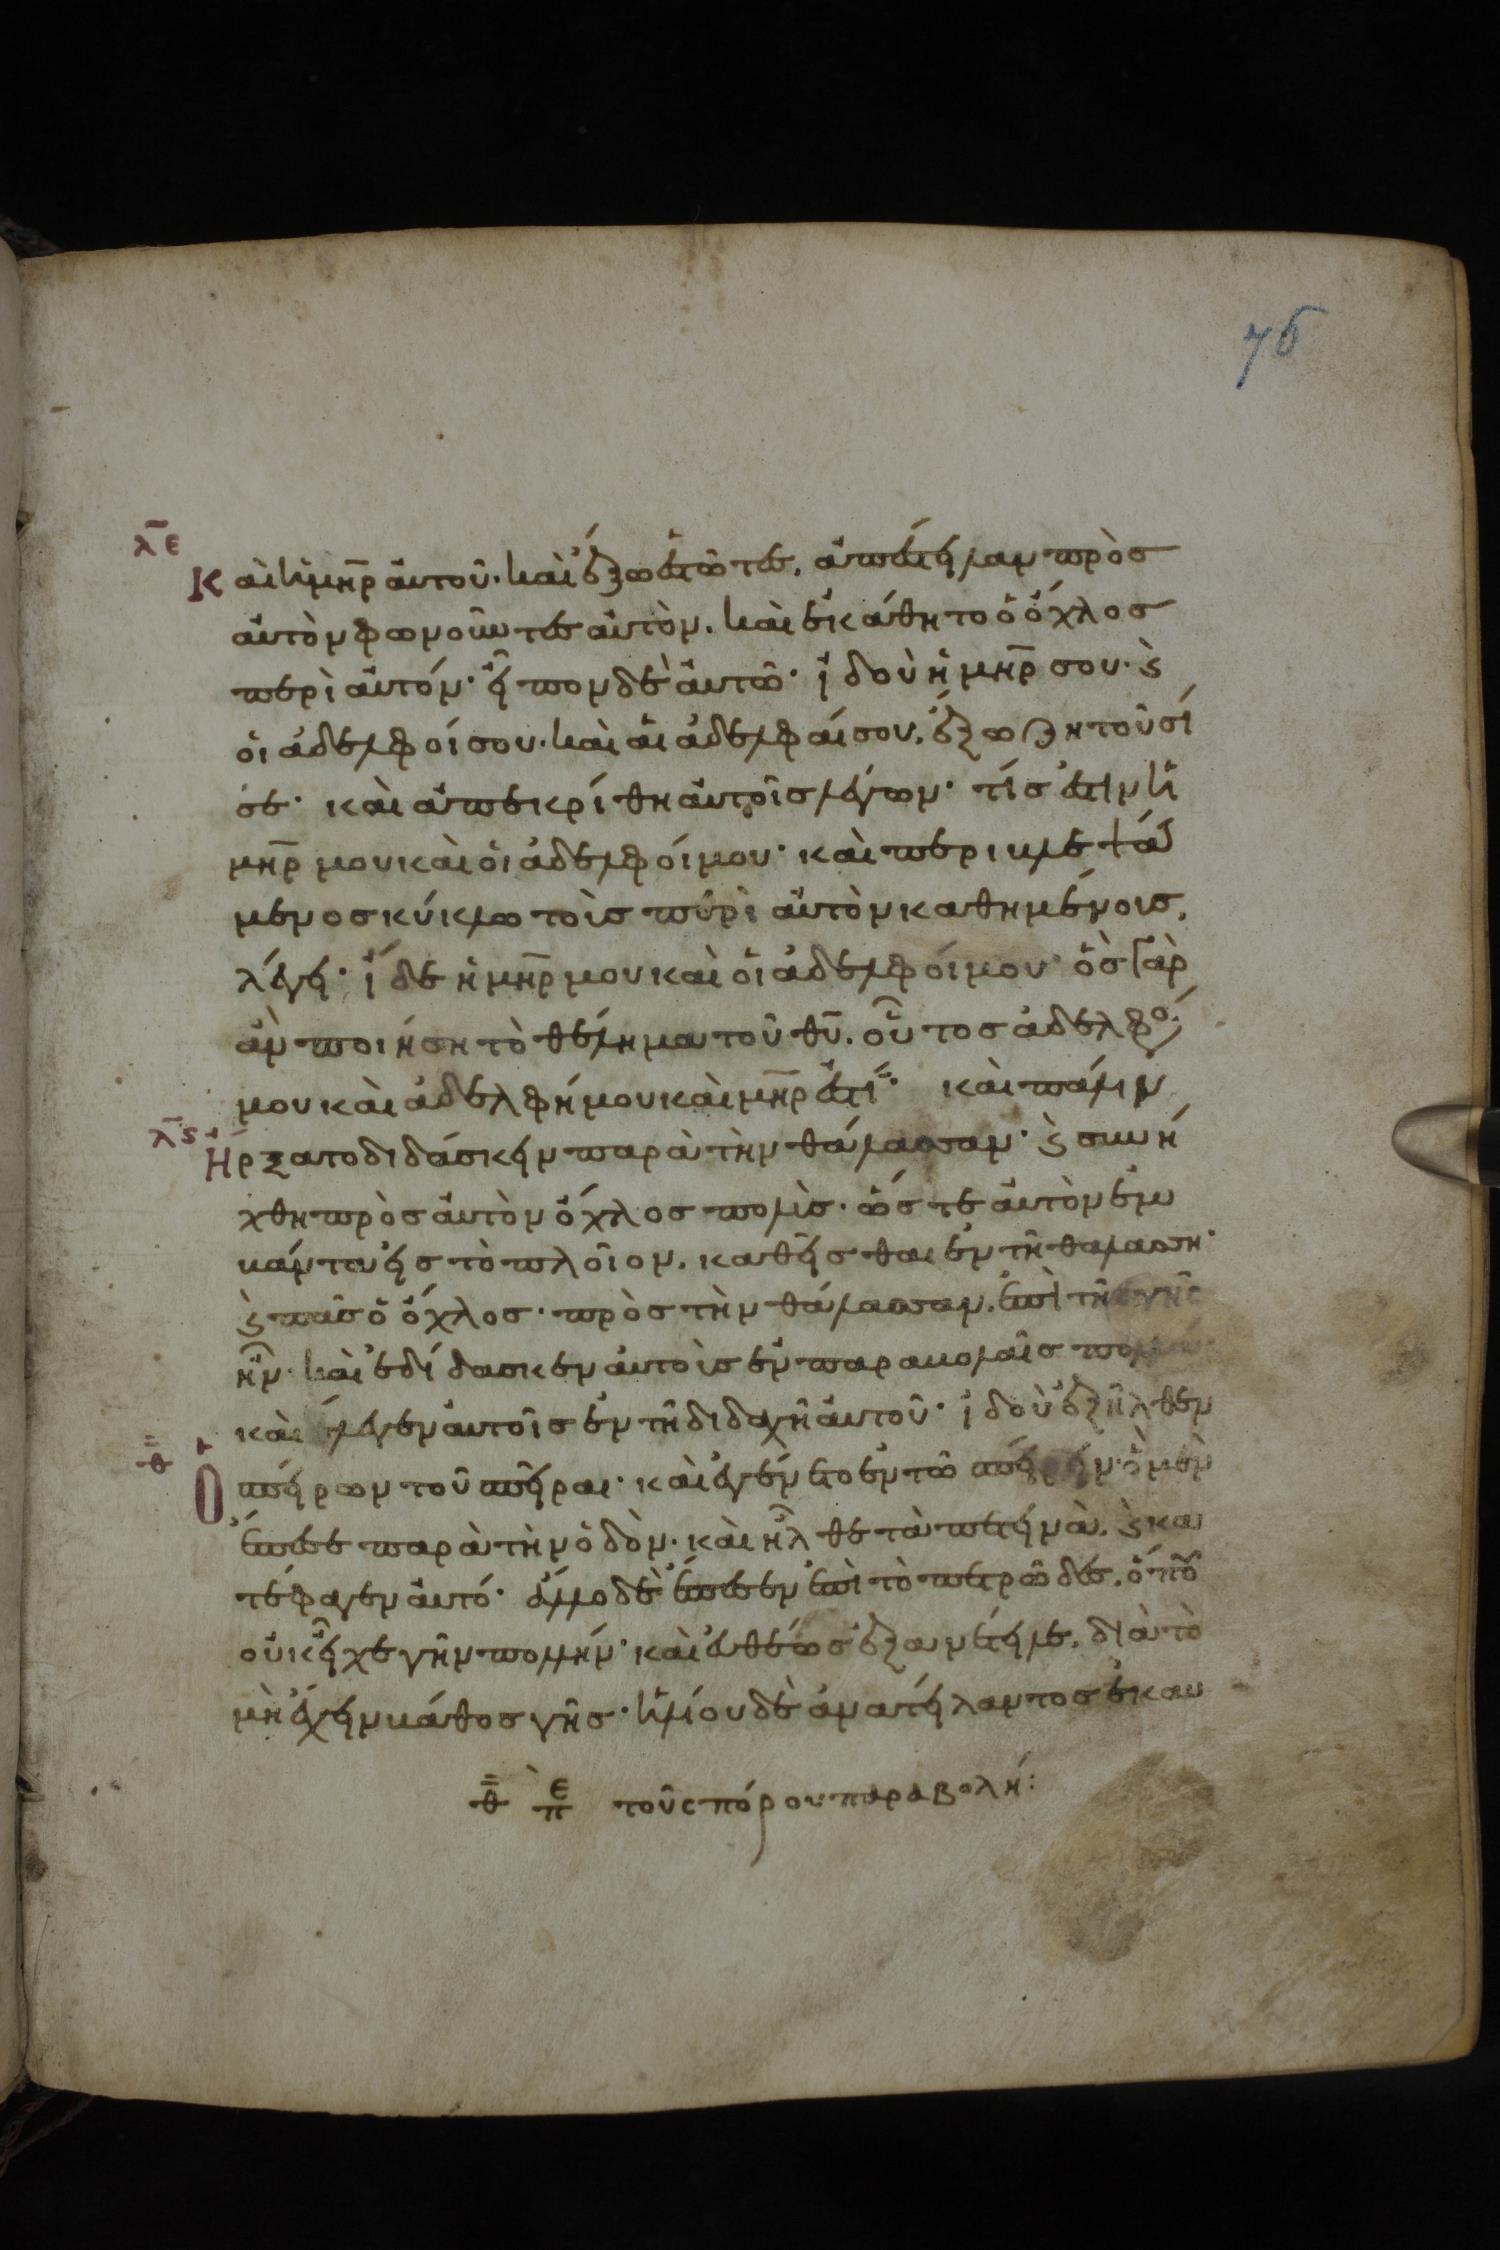 76
λ̅ε̅
Καὶ ἡ μη̅ρ αὐτοῦ· καὶ ἔξω ἑστῶτες, ἀπέστειλαν πρὸς
αὐτὸν φωνοῦντες αὐτὸν. καὶ ἐκάθητο ὁ ὄχλος
περὶ αὐτόν· εἶπον δὲ αὐτῶ· ἰδοὺ ἡ μη̅ρ σου· ϗ
οἱ ἀδελφοί σου· καὶ αἱ ἀδελφαί σου, ἔξω ζητοῦσί
σε· καὶ ἀπεκρίθη αὐτοῖς λέγων· τίς ἐστιν ἡ
μη̅ρ μου καὶ οἱ ἀδελφοί μου· καὶ περιβλεψά
μενος κύκλω τοὺς περὶ αὐτὸν καθημένους,
λέγει· ἴδε ἡ μη̅ρ μου καὶ οἱ ἀδελφοί μου· ὃς γὰρ
ἂν ποιήση τὸ θέλημα τοῦ θ̅υ̅. οὗτος ἀδελφός
μου καὶ ἀδελφή μου καὶ μη̅ρ ἐστί· καὶ πάλιν
λ̅ς̅
ἤρξατο διδάσκειν παρὰ τὴν θάλασσαν· ϗ συνή
χθη πρὸς αὐτὸν ὄχλος πολὺς· ὥστε αὐτὸν ἐμ
βάντα εἰς τὸ πλοῖον, καθῆσθαι ἐν τῆ θαλάσση·
ϗ πᾶς ὁ ὄχλος· πρὸς τὴν θάλασσαν, ἐπὶ τῆς γῆς
ἦν· καὶ ἐδίδασκεν αὐτοὺς ἐν παραβολαῖς πολλά·
καὶ ἔλεγεν αὐτοῖς ἐν τῆ διδαχῆ αὐτοῦ· ἰδοὺ ἐξῆλθεν
θ̅
ὁ σπείρων τοῦ σπεῖραι· καὶ ἐγένετο ἐν τῶ σπείρειν· ὃ μὲν
ἔπεσε παρὰ τὴν ὁδὸν· καὶ ἦλθε τὰ πετεινὰ, ϗ κα
τέφαγεν αὐτό· ἄλλο δὲ ἔπεσεν ἐπὶ τὸ πετρῶδες, ὅπου
οὐκ εἶχε γῆν πολλήν· καὶ εὐθέως ἐξανέτειλε, διὰ τὸ
μὴ ἔχειν βάθος γῆς· ἡλίου δὲ ἀνατείλαντος ἐκαυ
θ̅ ε π τοῦ σπόρου παραβολή: